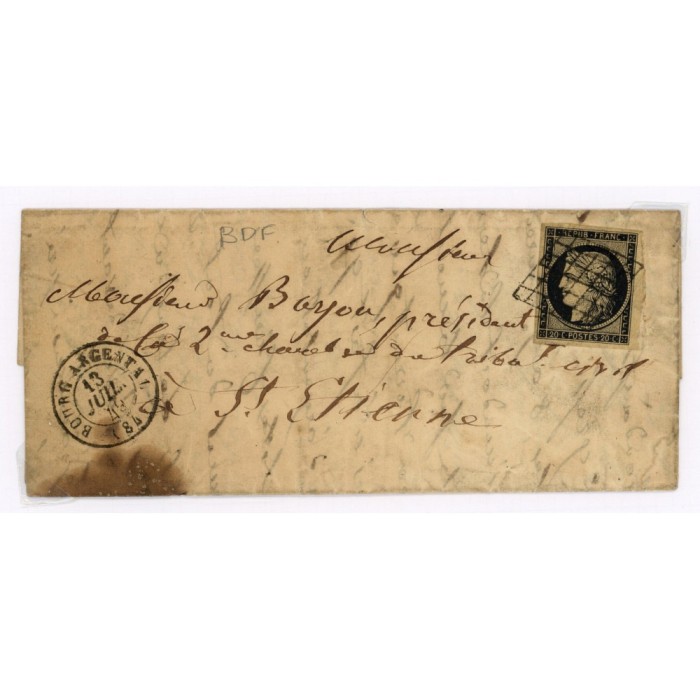 BDF
REPUB · FRANC
20 C POSTES 20 C
Monsieur
Monsieur Boyon, président
de la 2me chambre du tribal civil
à St Etienne
BOURG-ARGENTAL (84)
13
JUIL.